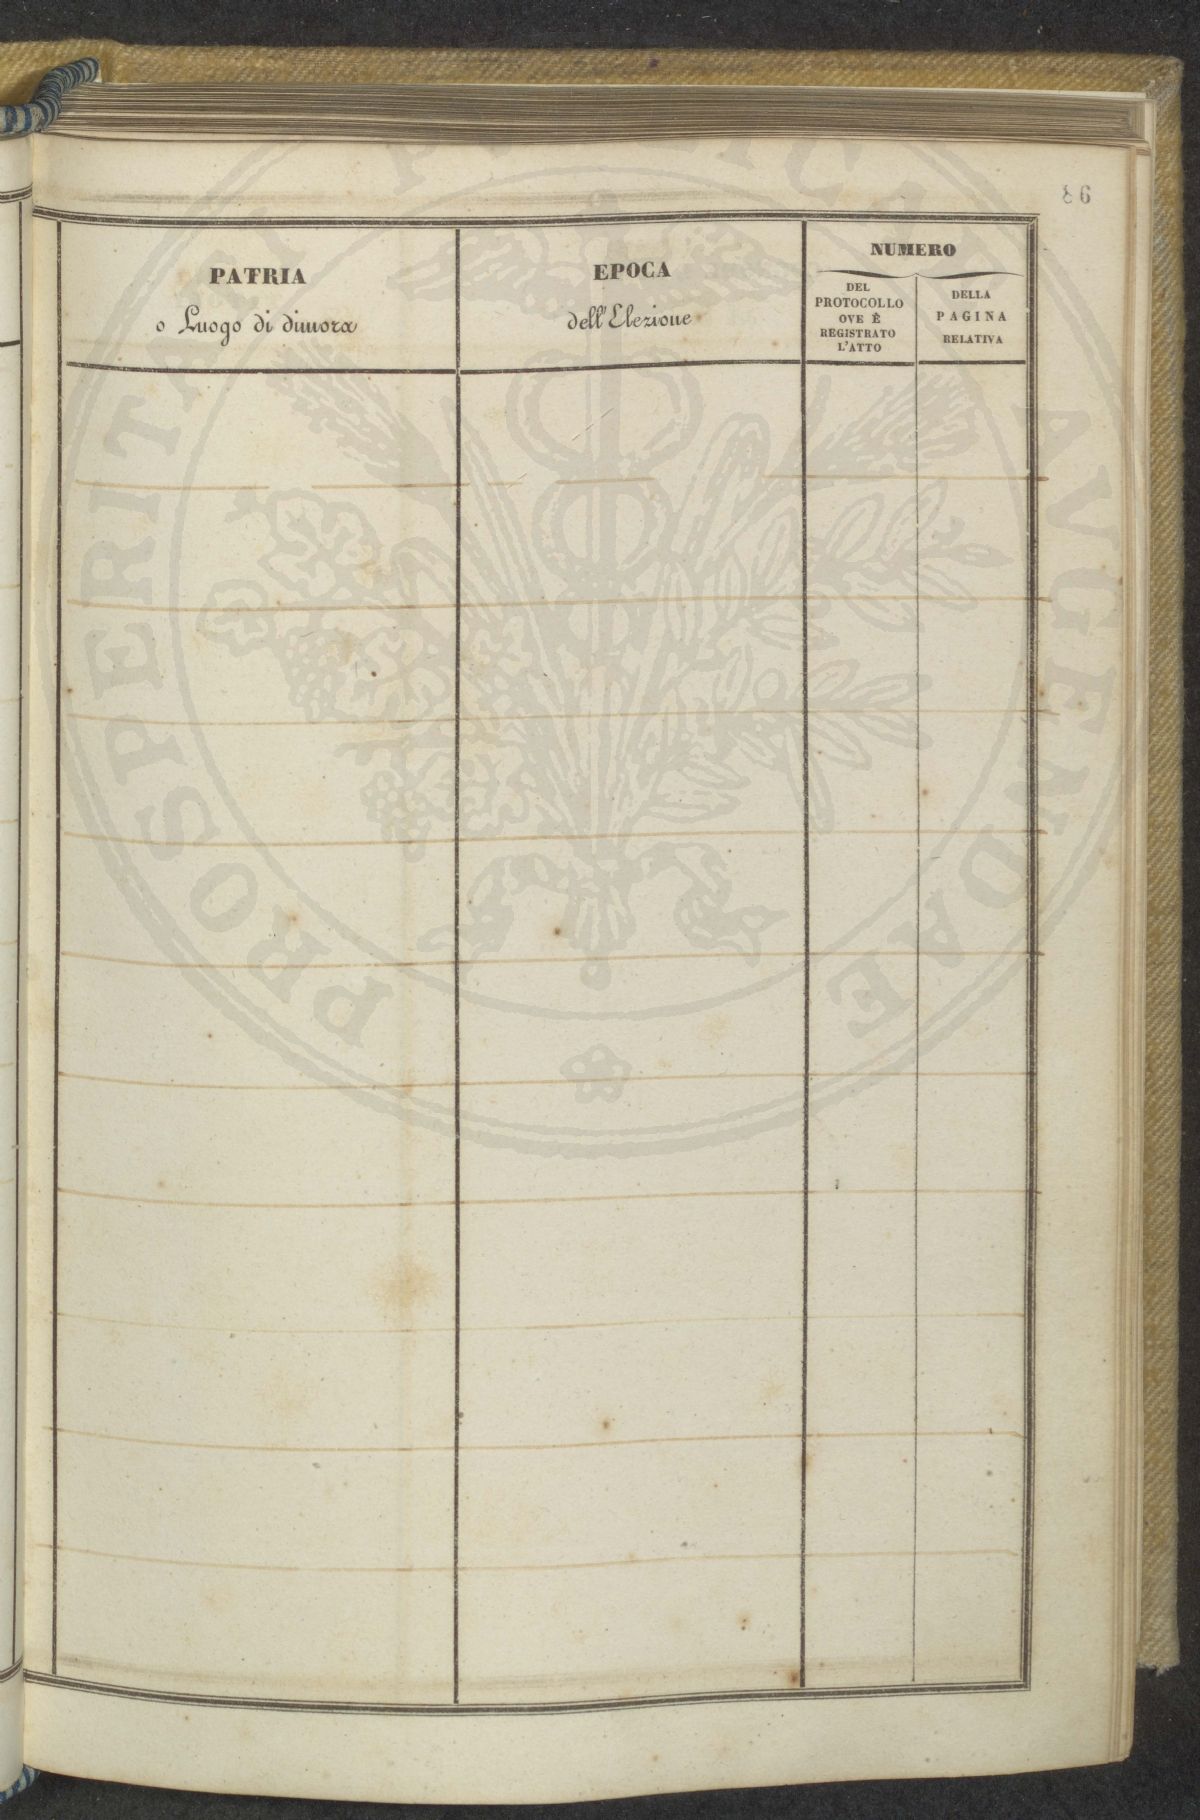 86
PATRIA
o Luogo di dimora
EPOCA
dell'Elezione
NUMERO
DEL
PROTOCOLLO
OVE È
REGISTRATO
L'ATTO
DELLA
PAGINA
RELATIVA
PROSPERITATI PUBLICAE AVGENDAE